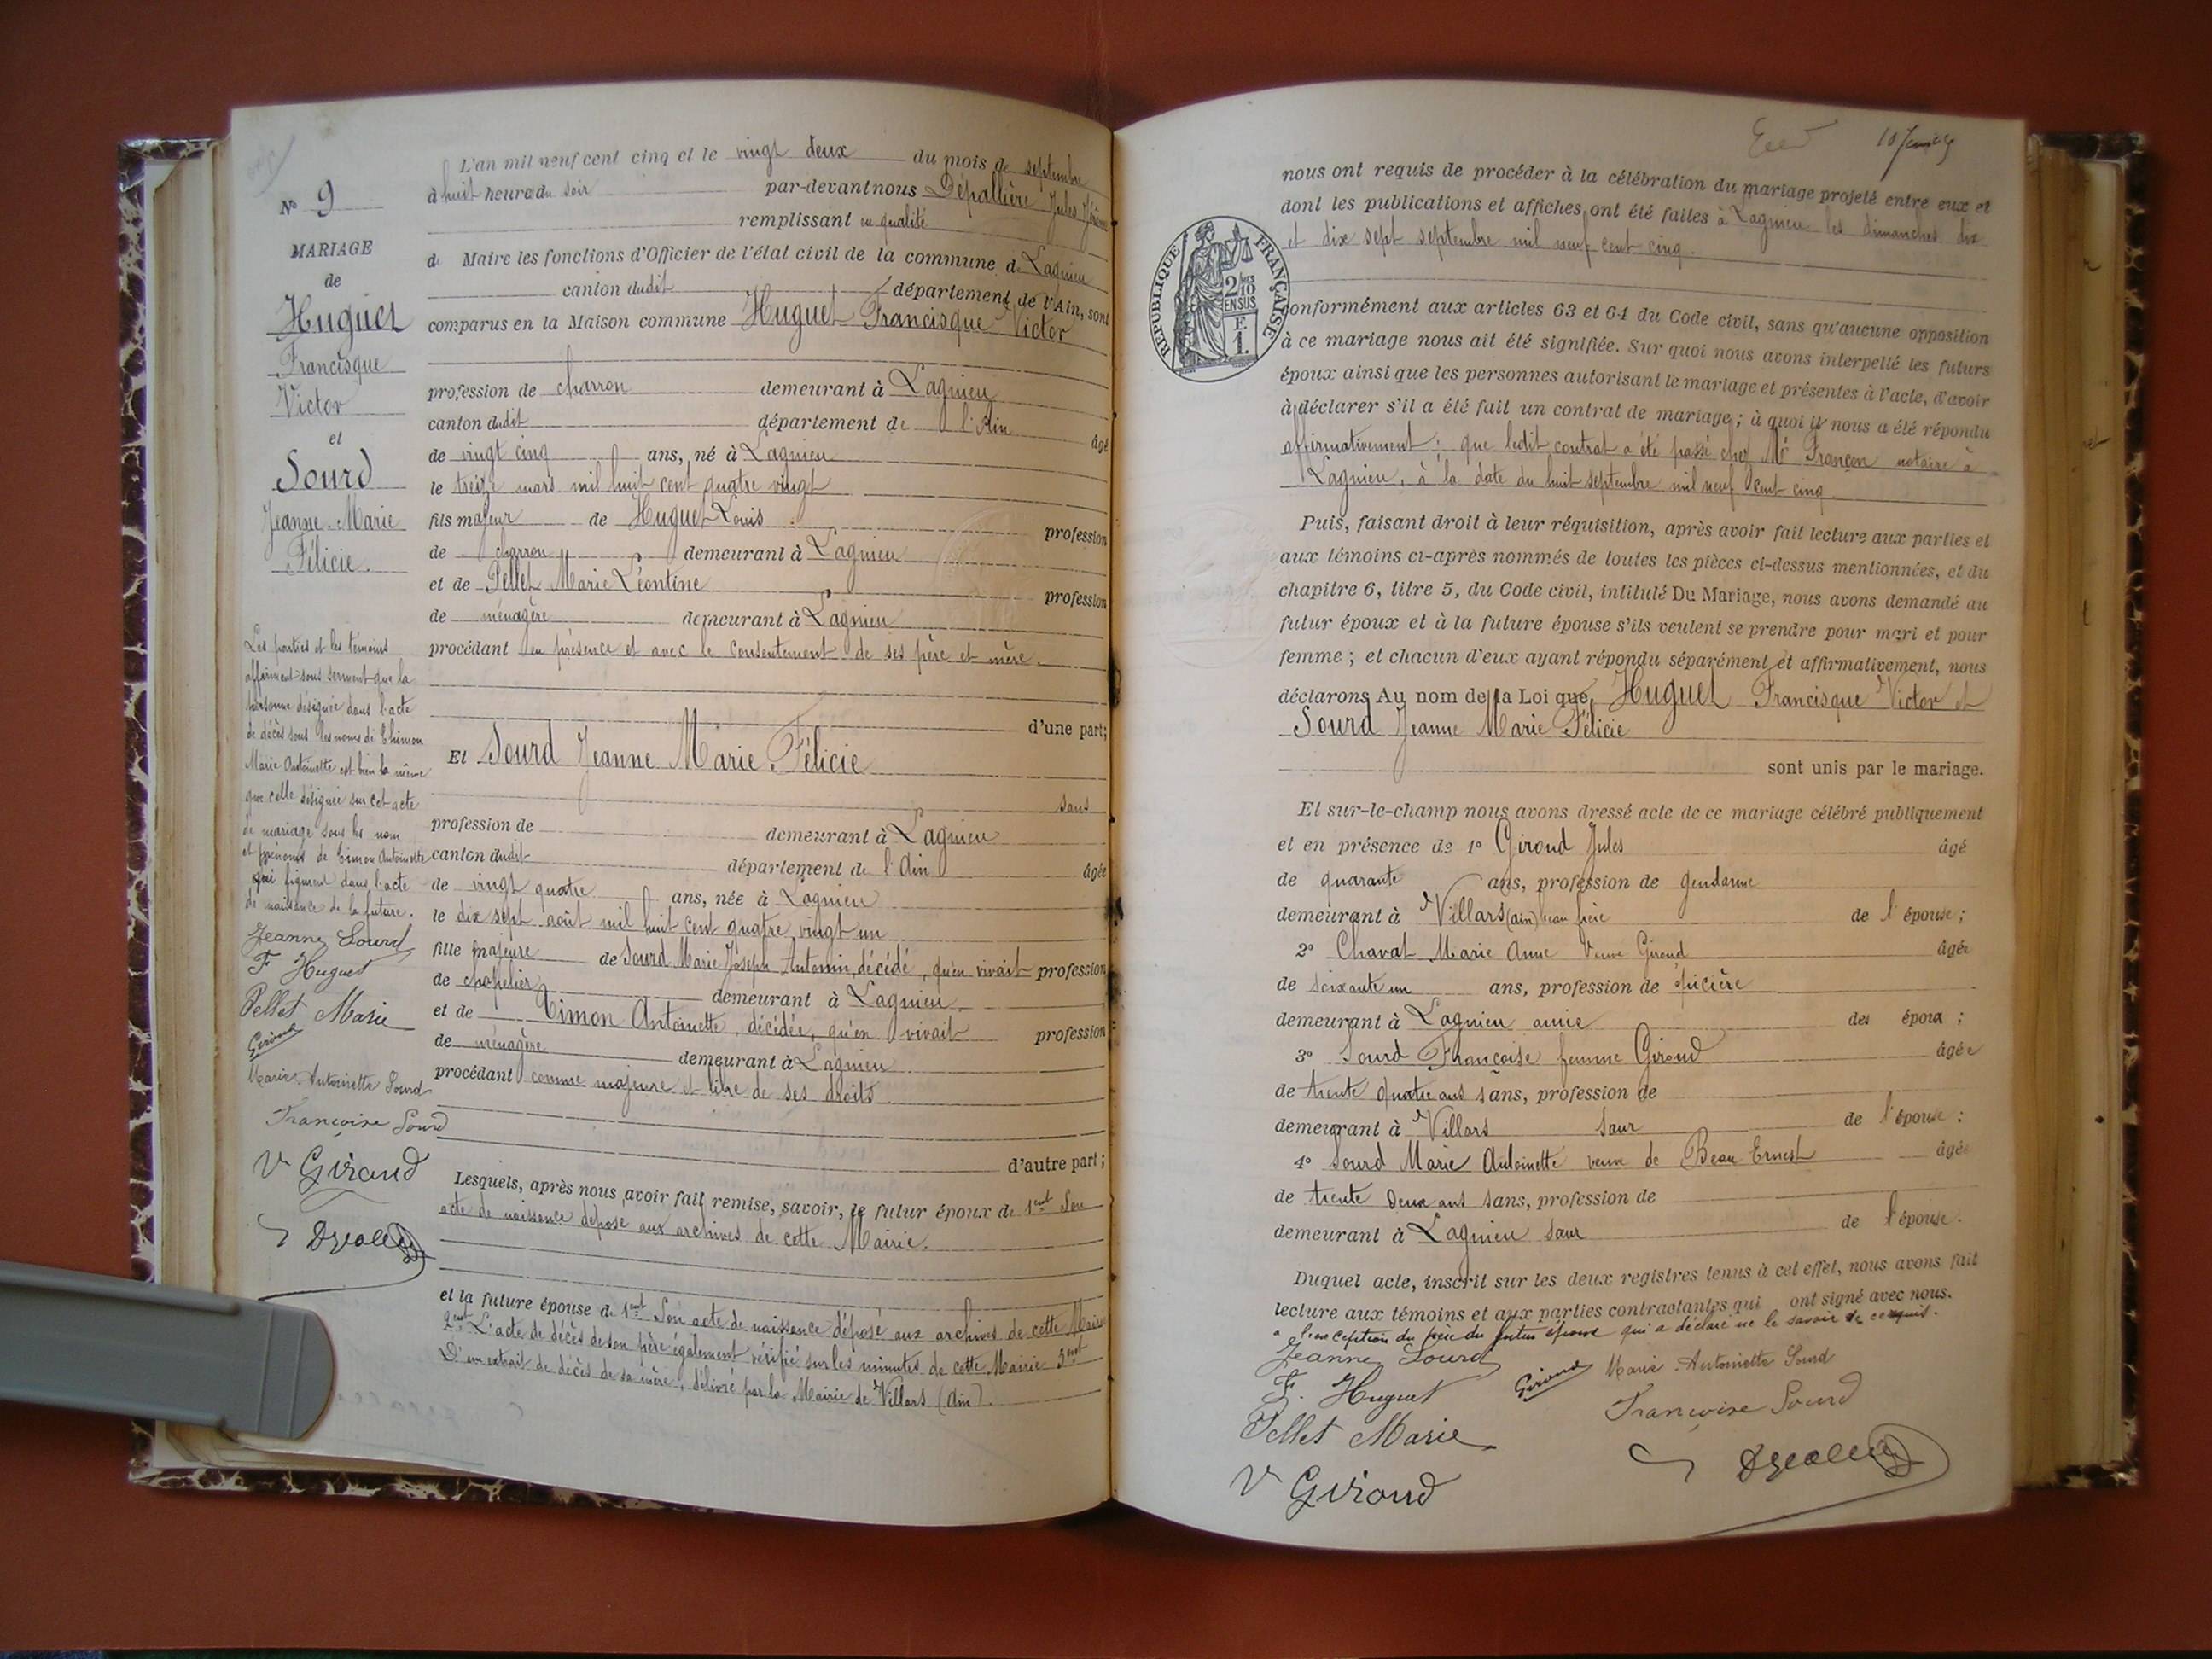 L'an mil neuf cent cinq et le vingt deux du mois de septembre
à huit heure du soir par-devant nous Dépallière Jules
remplissant en qualité
de Maire les fonctions d'Officier de l'état civil de la commune de Lagnieu
canton dudit département de l'Ain, sont
comparus en la Maison commune Huguet Francisque Victor
profession de charron demeurant à Lagnieu
canton dudit département de l'Ain âgé
de vingt cinq ans, né à Lagnieu
le treize mars mil huit cent quatre vingt
fils majeur de Huguet Louis profession
de charron demeurant à Lagnieu
et de Pellet Marie Léontine profession
de ménagère demeurant à Lagnieu
procédant en présence et avec le consentement de ses père et mère.
d'une part;
Et Sourd Jeanne Marie Félicie
sans
profession de demeurant à Lagnieu
canton dudit département de l'Ain âgée
de vingt quatre ans, née à Lagnieu
le dix sept août mil huit cent quatre vingt un
fille majeure de Sourd Marie Joseph Antonin, décédé, qu'en vivait profession
de chapelier demeurant à Lagnieu
et de Simon Antoinette, décédée, qu'en vivait profession
de ménagère demeurant à Lagnieu
procédant comme majeure et libre de ses droits
d'autre part;
Lesquels, après nous avoir fait remise, savoir, le futur époux de 1ent Son
acte de naissance déposé aux archives de cette Mairie.
et la future épouse de 1ent Son acte de naissance déposé aux archives de cette Mairie
2ent L'acte de décès de son père également vérifié sur les minutes de cette Mairie 3ent
D'un extrait de décès de sa mère, délivré par la Mairie de Villars (Ain).
No 9
MARIAGE
de
Huguet
Francisque
Victor
et
Sourd
Jeanne-Marie
Félicie.
Les parties et les témoins
affirment sous serment que la
personne désignée dans l'acte
de décès sous les noms de Chimon
Marie Antoinette est bien la même
que celle désignée sur cet acte
de mariage sous les nom
et prénoms de Simon Antoinette
qui figurent dans l'acte
de naissance de la future.
Jeanne Sourd
F Huguet
Pellet Marie
Giroud
Marie-Antoinette Sourd
Françoise Sourd
Ve Giroud
nous ont requis de procéder à la célébration du mariage projeté entre eux et
dont les publications et affiches ont été faites à Lagnieu les dimanches dix
et dix sept septembre mil neuf cent cinq.
RÉPUBLIQUE FRANÇAISE
2/10
EN SUS
F.
1.
conformément aux articles 63 et 64 du Code civil, sans qu'aucune opposition
à ce mariage nous ait été signifiée. Sur quoi nous avons interpellé les futurs
époux ainsi que les personnes autorisant le mariage et présentes à l'acte, d'avoir
à déclarer s'il a été fait un contrat de mariage; à quoi il nous a été répondu
affirmativement; que ledit contrat a été passé chez Me Françon notaire à
Lagnieu, à la date du huit septembre mil neuf cent cinq.
Puis, faisant droit à leur réquisition, après avoir fait lecture aux parties et
aux témoins ci-après nommés de toutes les pièces ci-dessus mentionnées, et du
chapitre 6, titre 5, du Code civil, intitulé Du Mariage, nous avons demandé au
futur époux et à la future épouse s'ils veulent se prendre pour mari et pour
femme; et chacun d'eux ayant répondu séparément et affirmativement, nous
déclarons Au nom de la Loi que, Huguet Francisque Victor et
Sourd Jeanne Marie Félicie
sont unis par le mariage.
Et sur-le-champ nous avons dressé acte de ce mariage célébré publiquement
et en présence de 1o Giroud Jules âgé
de quarante ans, profession de gendarme
demeurant à Villars (ain) beau frère de l'épouse;
2o Chavat Marie Anne Veuve Giroud âgée
de soixante un ans, profession de épicière
demeurant à Lagnieu amie des époux;
3o Sourd Françoise femme Giroud âgée
de trente quatre ans sans, profession de
demeurant à Villars sœur de l'épouse;
4o Sourd Marie Antoinette veuve de Beau Ernest âgée
de trente deux ans sans, profession de
demeurant à Lagnieu sœur de l'épouse.
Duquel acte, inscrit sur les deux registres tenus à cet effet, nous avons fait
lecture aux témoins et aux parties contractantes qui ont signé avec nous.
à l'exception du père du futur époux qui a déclaré ne le savoir de ce requis.
Jeanne Sourd
F. Huguet
Giroud
Marie-Antoinette Sourd
Françoise Sourd
Pellet Marie
Ve Giroud